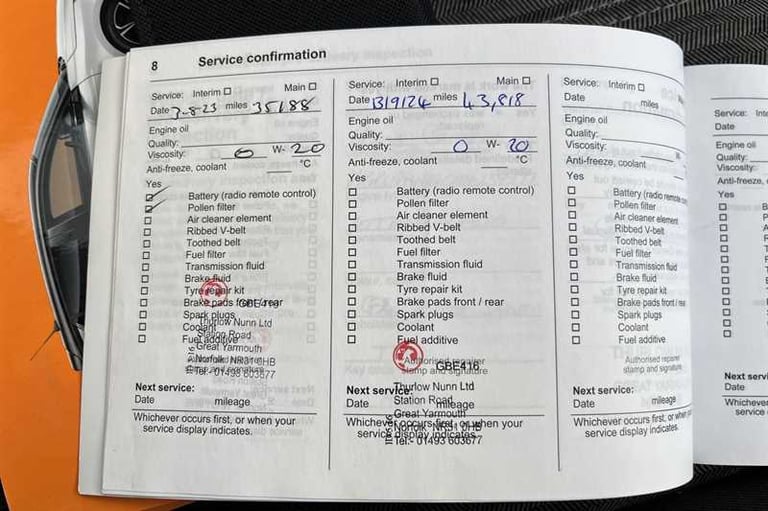 8 Service confirmation
Service: Interim □ Main □
Date 3-8-23 miles 35188
Engine oil
Quality:
Viscosity: 0 W- 20
Anti-freeze, coolant °C
Yes
Battery (radio remote control)
Pollen filter
Air cleaner element
Ribbed V-belt
Toothed belt
Fuel filter
Transmission fluid
Brake fluid
Tyre repair kit
Brake pads front / rear
Spark plugs
Coolant
Fuel additive
GBE416
Thurlow Nunn Ltd
Station Road
Great Yarmouth
Norfolk NR31 0HB
Tel:- 01493 603677
Next service:
Date mileage
Whichever occurs first, or when your
service display indicates.
Service: Interim □ Main □
Date 13/9/24 miles 43,818
Engine oil
Quality:
Viscosity: 0 W- 20
Anti-freeze, coolant °C
Yes
Battery (radio remote control)
Pollen filter
Air cleaner element
Ribbed V-belt
Toothed belt
Fuel filter
Transmission fluid
Brake fluid
Tyre repair kit
Brake pads front / rear
Spark plugs
Coolant
Fuel additive
Authorised repairer
stamp and signature
GBE416
Thurlow Nunn Ltd
Station Road
Great Yarmouth
Norfolk NR31 0HB
Tel:- 01493 603677
Next service:
Date mileage
Whichever occurs first, or when your
service display indicates.
Service: Interim □
Date miles
Engine oil
Quality:
Viscosity:
Anti-freeze, coolant
Yes
Battery (radio remote
Pollen filter
Air cleaner element
Ribbed V-belt
Toothed belt
Fuel filter
Transmission fluid
Brake fluid
Tyre repair kit
Brake pads front / rea
Spark plugs
Coolant
Fuel additive
Authorised repairer
stamp and signature
Next service:
Date mileage
Whichever occurs first, or when
service display indicates.
Service:
Date
Engine oil
Quality:
Viscosity:
Anti-freeze,
Yes
Next servi
Date
Whichever
service